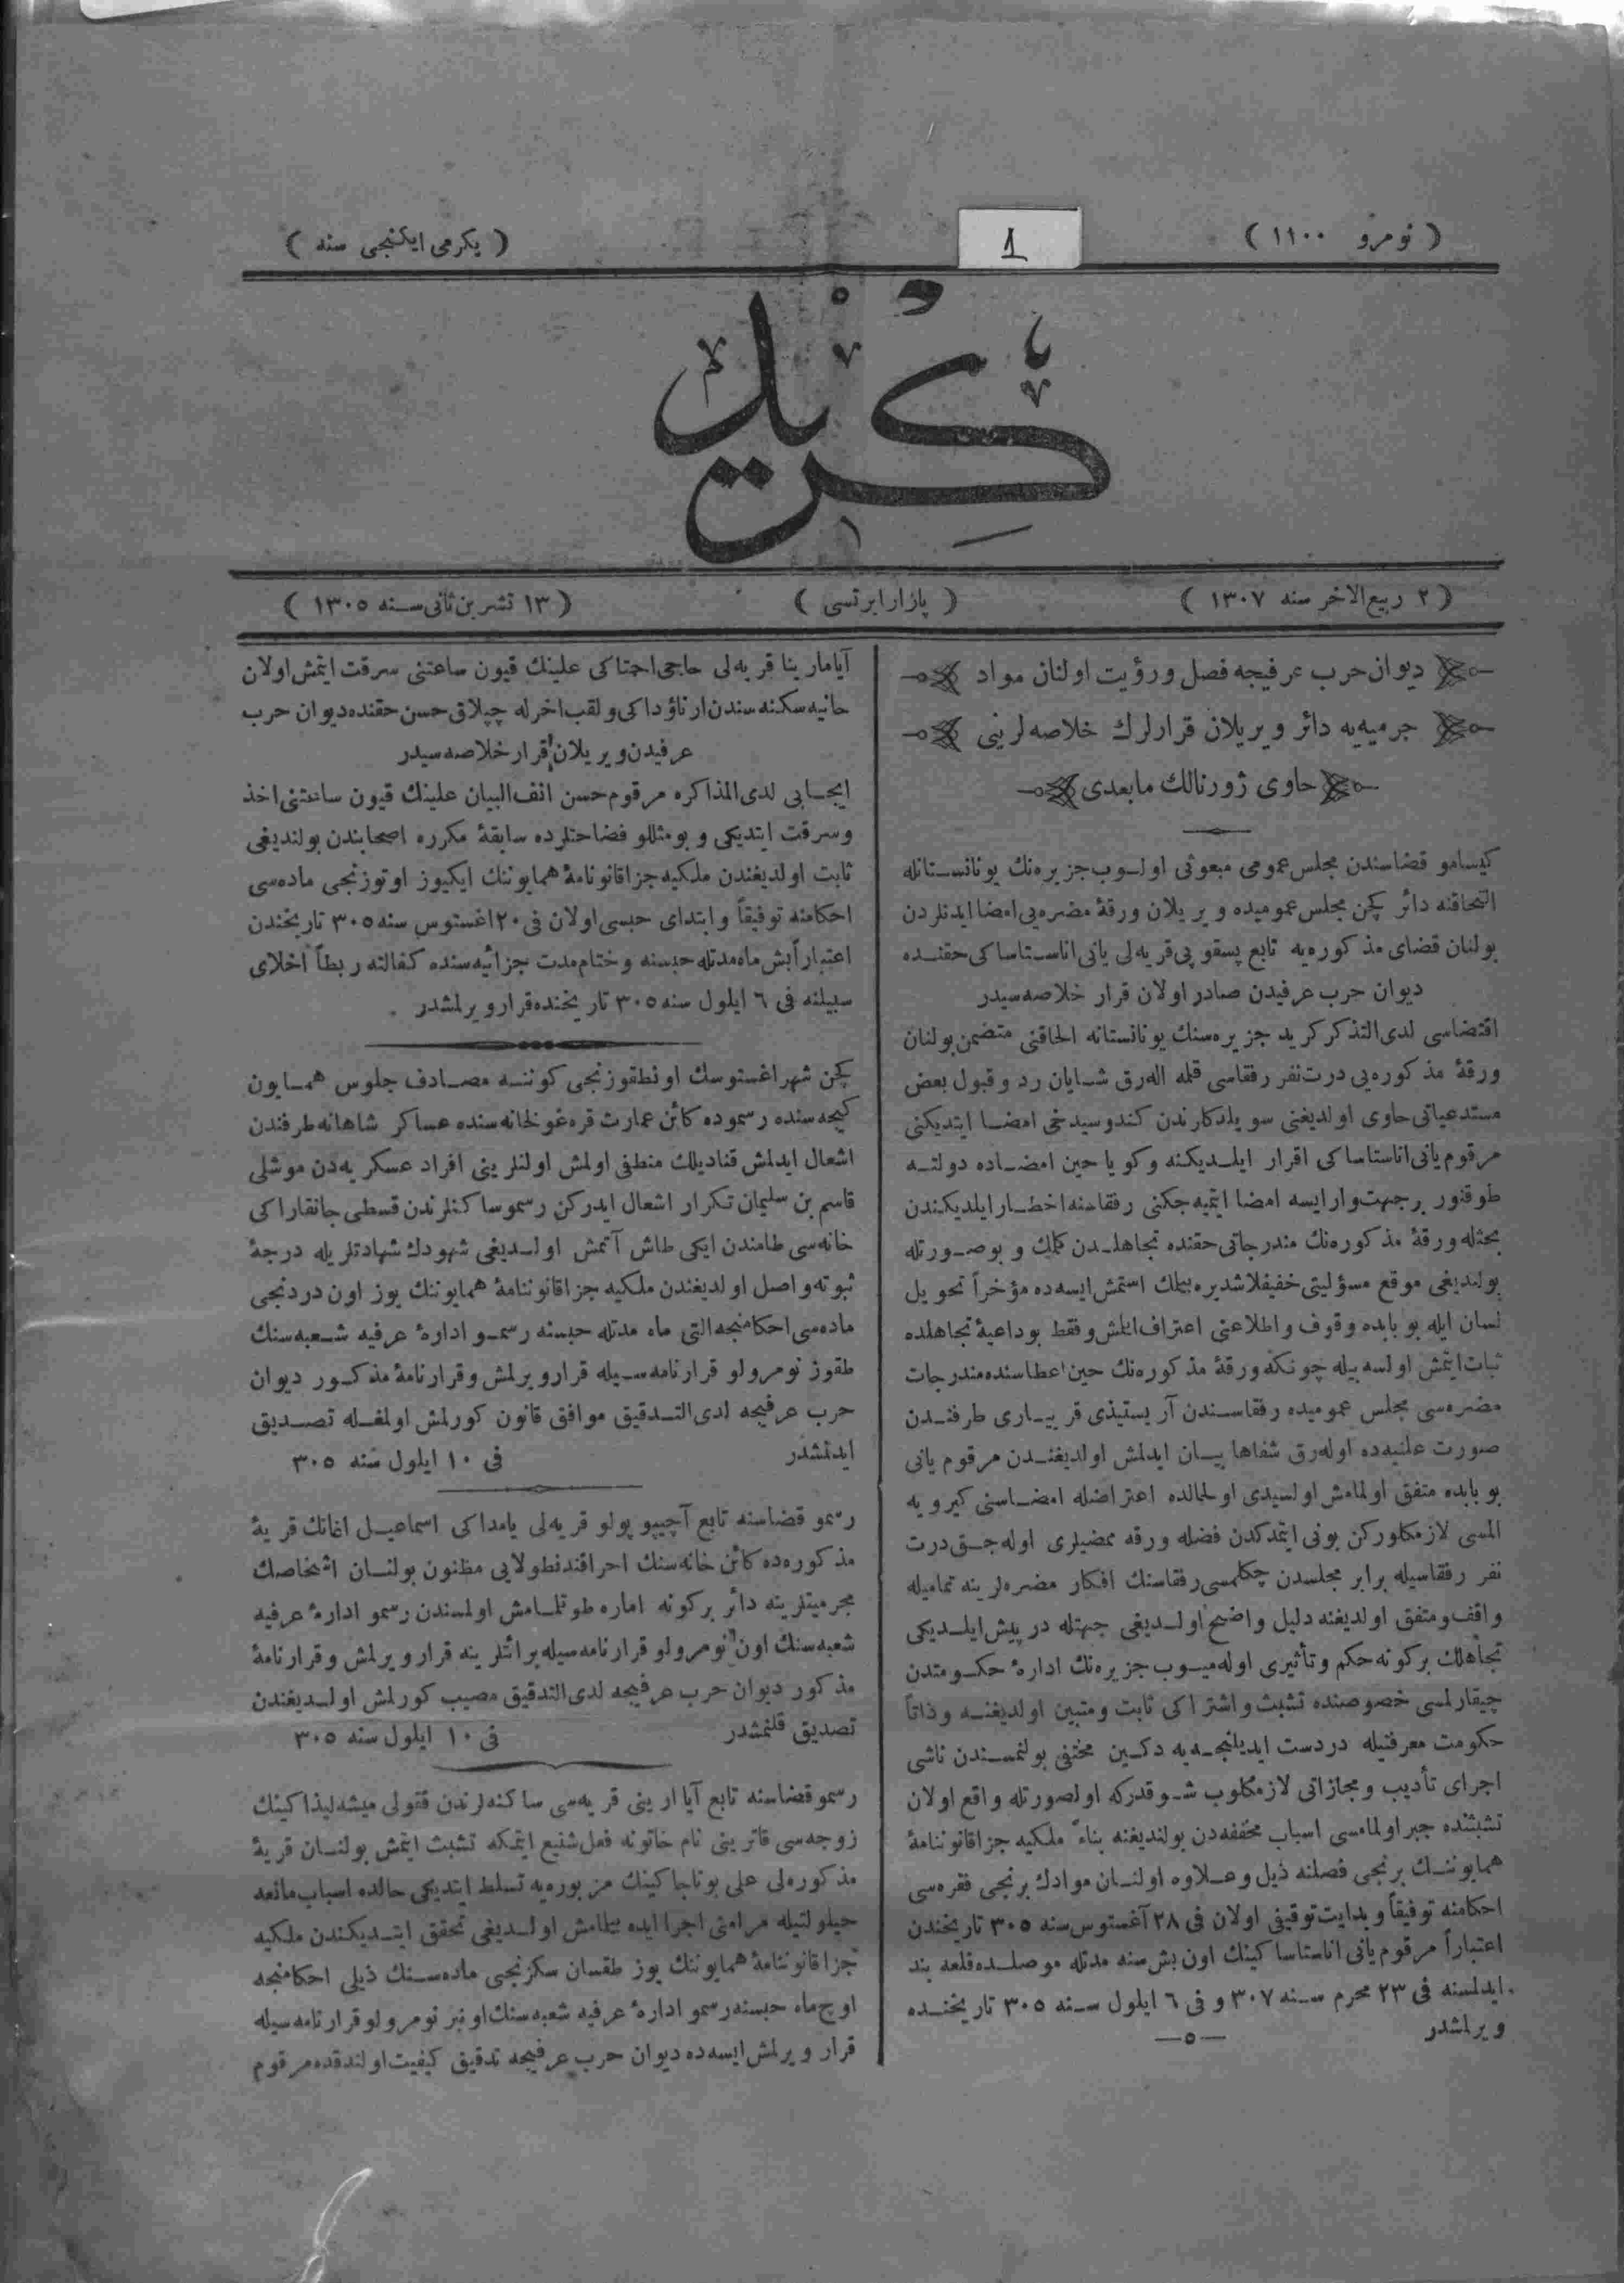 ( نومرو ١١٠٠ )
1
( یكرمی ایكنجی سنه )
كرید
( ٢ ربیع الاخر سنه ١٣٠٧ )
( پازار ایرتسی )
( ١٣ تشرین ثانی سنه ١٣٠٥ )
دیوان حرب عرفیجه فصل و رؤیت اولنان مواد
جرمیه‌یه دائر ویریلان قرارلرك خلاصه‌لرینی
حاوی ژورنالك مابعدی
كیسامو قضاسندن مجلس عمومی مبعوثی اولوب جزیره‌نك یونانستانله
التحاقنه دائر كچن مجلس عمومیده ویریلان ورقۀ مضره‌یی امضا ایدنلردن
بولنان قضای مذكوره‌یه تابع پسقوپی قریه‌لی یانی اناستاساكی حقنده
دیوان حرب عرفیدن صادر اولان قرار خلاصه‌سیدر
اقتضاسی لدی التذكر كرید جزیره‌سنك یونانستانه الحاقنی متضمن بولنان
ورقۀ مذكوره‌یی درت نفر رفقاسی قلمه اله‌رق شایان رد و قبول بعض
مستدعیاتی حاوی اولدیغنی سویلدكلرندن كندوسیدخی امضا ایتدیكنی
مرقوم یانی اناستاساكی اقرار ایلدیكنه وكویا حین امضاده دولته
طوقنور بر جهت وار ایسه امضا ایتمیه‌جكنی رفقاسنه اخطار ایلدیكندن
بحثله ورقۀ مذكوره‌نك مندرجاتی حقنده تجاهلدن كلمك و بو صورتله
بولندیغی موقع مسؤلیتی خفیفلاشدیره بیلمك استمش ایسه‌ده مؤخراً تحویل
لسان ایله بو بابده وقوف و اطلاعنی اعتراف ایلمش و فقط بو داعیۀ تجاهلده
ثبات ایتمش اولسه بیله چونكه ورقۀ مذكوره‌نك حین اعطاسنده مندرجات
مضره‌سی مجلس عمومیده رفقاسندن آریستیذی قریاری طرفندن
صورت علنیه‌ده اوله‌رق شفاها بیان ایدلمش اولدیغندن مرقوم یانی
بو بابده متفق اولمامش اولسیدی اولحالده اعتراضله امضاسنی كیرویه
المسی لازمكلوركن بونی ایتمدكدن فضله ورقه ممضیلری اوله‌جق درت
نفر رفقاسیله برابر مجلسدن چكلمسی رفقاسنك افكار مضره‌لرینه تمامیله
واقف و متفق اولدیغنه دلیل واضح اولدیغی جهتله درپیش ایلدیكی
تجاهلك بر كونه حكم و تأثیری اوله‌میوب جزیره‌نك ادارۀ حكومتدن
چیقارلمسی خصوصنده تشبث و اشتراكی ثابت و متبین اولدیغنه و ذاتاً
حكومت معرفتیله دردست ایدیلنجه‌یه دكین مختفی بولنمسندن ناشی
اجرای تأدیب و مجازاتی لازمكلوب شوقدركه اولصورتله واقع اولان
تشبثنده جبر اولمامسی اسباب مخففه‌دن بولندیغنه بناءً ملكیه جزا قانوننامۀ
همایوننك برنجی فصلنه ذیل و علاوه اولنان موادك برنجی فقره‌سی
احكامنه توفیقاً و بدایت توقیفی اولان فی ٢٨ آغستوس سنه ٣٠٥ تاریخندن
اعتباراً مرقوم یانی اناستاساكینك اون بش سنه مدتله موصلده قلعه بند
ایدلسنه فی ٢٣ محرم سنه ٣٠٧ و فی ٦ ایلول سنه ٣٠٥ تاریخنده
ویرلمشدر
آیامارینا قریه‌لی حاجی احمتاكی علینك قیون ساعتنی سرقت ایتمش اولان
حانیه سكنه‌سندن ارناؤداكی و لقب اخرله چپلاق حسن حقنده دیوان حرب
عرفیدن ویریلان قرار خلاصه‌سیدر
ایجابی لدی المذاكره مرقوم حسن انف البیان علینك قیون ساعتنی اخذ
وسرقت ایتدیكی و بومثللو فضاحتلرده سابقۀ مكرره اصحابندن بولندیغی
ثابت اولدیغندن ملكیه جزا قانوننامۀ همایوننك ایكیوز اوتوزنجی ماده‌سی
احكامنه توفیقاً و ابتدای حبسی اولان فی ٢٠ اغستوس سنه ٣٠٥ تاریخندن
اعتباراً بش ماه مدتله حبسنه و ختام مدت جزائیه‌سنده كفالته ربطاً اخلای
سبیلنه فی ٦ ایلول سنه ٣٠٥ تاریخنده قرار ویرلمشدر .
كچن شهر اغستوسك اونطقوزنجی كوننه مصادف جلوس همایون
كیجه‌سنده رسموده كائن عمارت قره‌غولخانه‌سنده عساكر شاهانه طرفندن
اشعال ایدلمش قنادیلك منطفی اولمش اولنلرینی افراد عسكریه‌دن موشلی
قاسم بن سلیمان تكرار اشعال ایدركن رسمو ساكنلرندن قسطی جانقاراكی
خانه‌سی طامندن ایكی طاش آتمش اولدیغی شهودك شهادتلریله درجۀ
ثبوته واصل اولدیغندن ملكیه جزا قانوننامۀ همایوننك یوز اون دردنجی
ماده‌سی احكامنجه التی ماه مدتله حبسنه رسمو ادارۀ عرفیه شعبه‌سنك
طقوز نومرولو قرارنامه‌سیله قرار ویرلمش و قرارنامۀ مذكور دیوان
حرب عرفیجه لدی التدقیق موافق قانون كورلمش اولمغله تصدیق
ایدلمشدر فی ١٠ ایلول سنه ٣٠٥
رسمو قضاسنه تابع آچیپوپولو قریه‌لی یامداكی اسماعیل اغانك قریۀ
مذكوره‌ده كائن خانه‌سنك احراقندنطولایی مظنون بولنان اشخاصك
مجرمیتلرینه دائر بركونه اماره طوتلمامش اولمسندن رسمو ادارۀ عرفیه
شعبه‌سنك اون نومرولو قرارنامه‌سیله برائتلرینه قرار ویرلمش و قرارنامۀ
مذكور دیوان حرب عرفیجه لدی التدقیق مصیب كورلمش اولدیغندن
تصدیق قلنمشدر فی ١٠ ایلول سنه ٣٠٥
رسمو قضاسنه تابع آیا ارینی قریه‌سی ساكنه‌لرندن میشه‌لیذاكینك
زوجه‌سی قاترینی نام خاتونه فعل شنیع ایتمكه تشبث ایتمش بولنان قریۀ
مذكوره‌لی علی بوتاجاكینك مزبوره‌یه تسلط ایتدیكی حالده اسباب مانعه
حیلولتیله مرامنی اجرا ایده بیلمامش اولدیغی تحقق ایتدیكندن ملكیه
جزا قانوننامۀ همایوننك یوز طقسان سكزنجی ماده‌سنك ذیلی احكامنجه
اوچ ماه حبسنه رسمو ادارۀ عرفیه شعبه‌سنك اونبر نومرولو قرارنامه‌سیله
قرار ویرلمش ایسه‌ده دیوان حرب عرفیجه تدقیق كیفیت اولندقده مرقوم